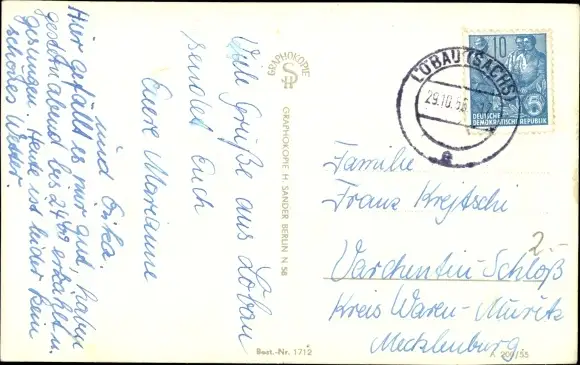 Viele Grüße aus Löbau
sendet Euch
Eure Marianne
und Erika.
Hier gefällt es mir gut, haben
gestern abend bis 24 00 erzählt u.
gesungen. Heute ist leider kein
schönes Wetter.
GRAPHOKOPIE
GRAPHOKOPIE H. SANDER BERLIN N 58
Best.-Nr. 1712
LÖBAU (SACHS)
29.10.56
a
10
5
DEUTSCHE
DEMOKRATISCHE REPUBLIK
Familie
Franz Krejtschi
2.-
Varchentin-Schloß
Kreis Waren-Müritz
Mecklenburg